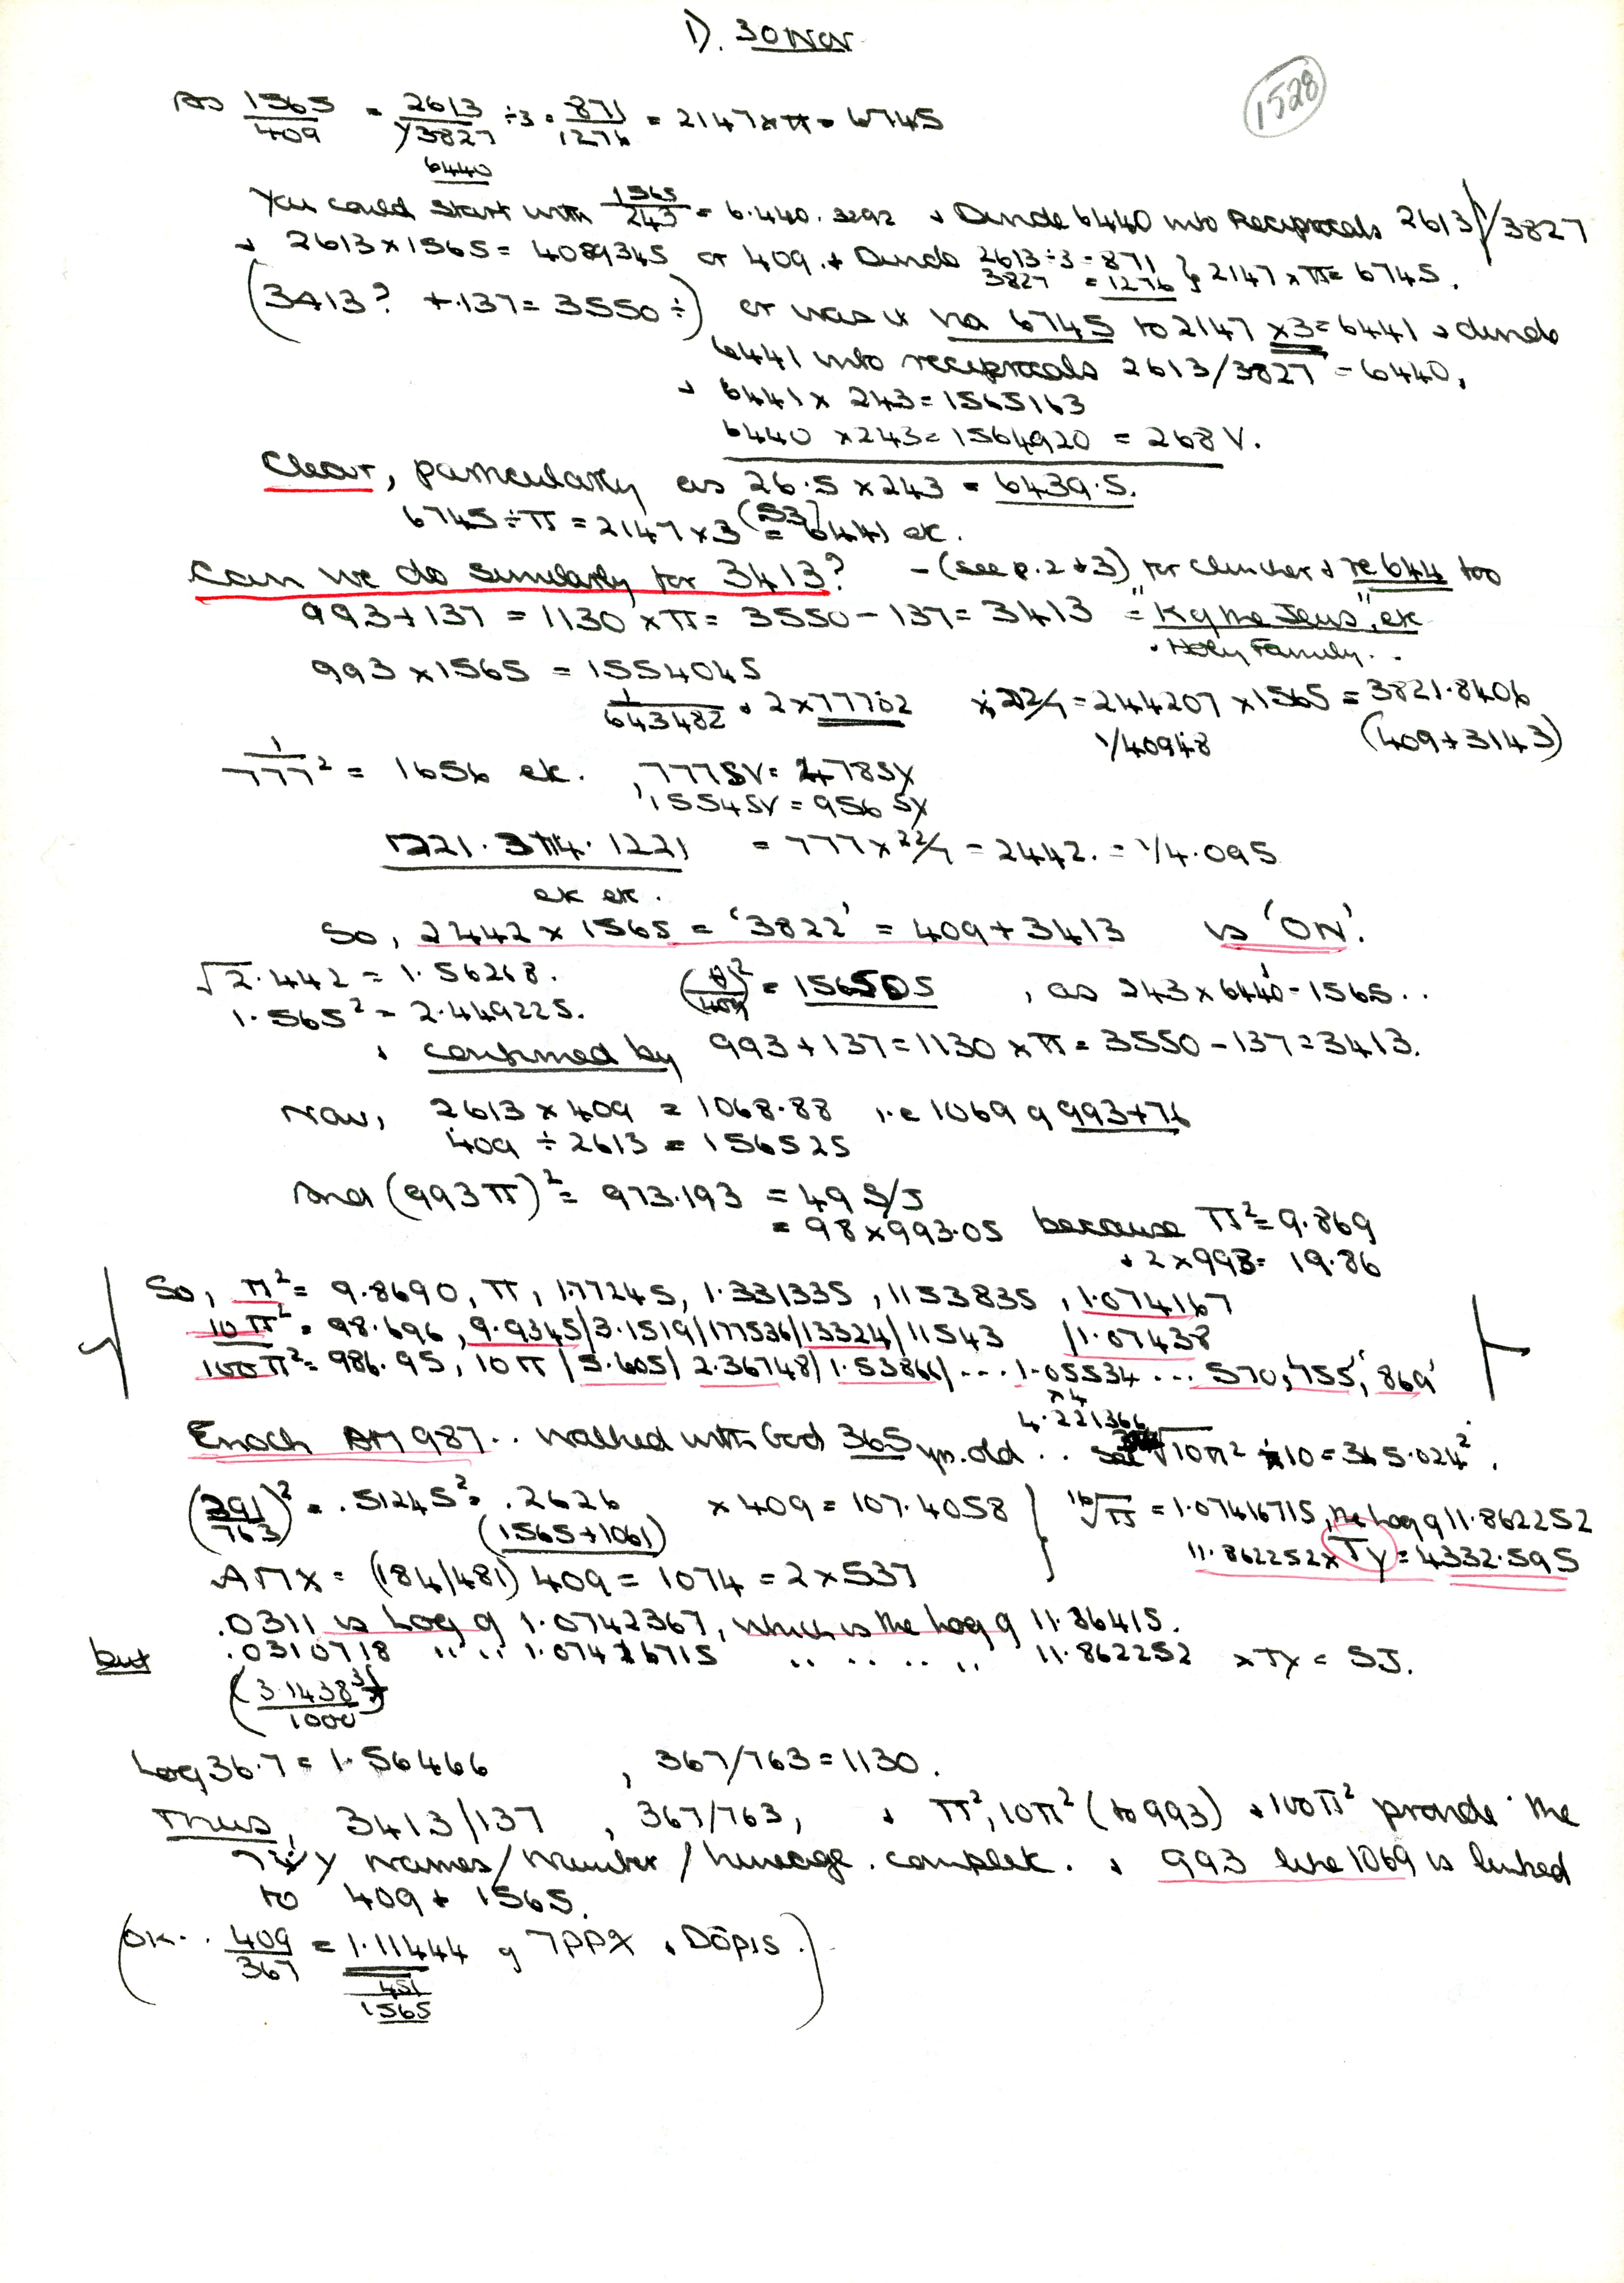 1). 30 Nov
1528
As 1565/409 = 2613/3827 ÷3 = 871/1276 = 2147 x π = 6745
6440
You could start with 1565/243 = 6.440.3292 + Divide 6440 into Reciprocals 2613 / 3827
+ 2613 x 1565 = 4089345 or 409. + Divide 2613÷3 = 871
3827 = 1276 } 2147 x π = 6745.
(3413? + .137 = 3550 ÷) or was it via 6745 to 2147 x3 = 6441 + divide
6441 into reciprocals 2613/3827 = 6440,
+ 6441 x 243 = 1565163
6440 x 243 = 1564920 = 268 V.
Clear, particularly as 26.5 x 243 = 6439.5.
(53)
6745 ÷ π = 2147 x 3 = 6441 etc.
Can we do similarly for 3413? - (see p. 2 + 3) for clincher + re 644 too
993 + 137 = 1130 x π = 3550 - 137 = 3413 = "Kg the Jews", etc
. Holy Family . .
993 x 1565 = 1554045
1/643482 + 2 x 77702 x 22/7 = 244207 x 1565 = 3821.8406
1/40948 (409 + 3143)
1/777² = 1656 etc. , 777 SV = 4785y
1554 SV = 956 Sy
1221. 3114. 1221 = 777 x 22/7 = 2442. = 1/4.095
etc etc.
So, 2442 x 1565 = '3822' = 409 + 3413 is 'ON'.
√2.442 = 1.56268.
1.565² = 2.449225.
= 156505 , as 243 x 6440 = 1565 . .
+ confirmed by 993 + 137 = 1130 x π = 3550 - 137 = 3413.
Now, 2613 x 409 = 1068.88 i.e 1069 of 993 + 76
409 ÷ 2613 = 156525
And (993π)² = 973.193 = 49 S/J
= 98 x 993.05 because π² = 9.869
+ 2 x 993 = 19.86
So, π² = 9.8690, π, 1.77245, 1.331335, 1153835, 1.074167
10π² = 98.696, 9.9345/3.1519/177536/13324/11543 /1.07438
100π² = 986.95, 10π / 5.605/ 2.36748/ 1.53866/ ... 1.05534 ... 570, '755', '869'
x 4
4.221366
Enoch AM 987 . . walked with God 365 yrs. old . . √10π² ÷10 = 365.024².
(391/763)² = .51245² = .2626 x 409 = 107.4058 } ¹⁶√π = 1.07416715, the Log of 11.862252
(1565+1061) 11.862252 x Ty = 4332.595
AMX = (184/481) 409 = 1074 = 2 x 537
.0311 is Log of 1.0742367, which is the Log of 11.86415.
but .0310718 .. .. 1.07416715 .. .. .. .. 11.862252 x Ty = SJ.
(3.1438³/1000)
Log 36.7 = 1.56466 , 367/763 = 1130.
Thus, 3413/137 , 367/763, + π², 10π² (to 993) + 100π² provide the
Names/Number/Lineage. complex. + 993 like 1069 is linked
to 409 + 1565.
(OK. . 409/367 = 1.11444 of 7PPX + Dōpis.)
451
1565